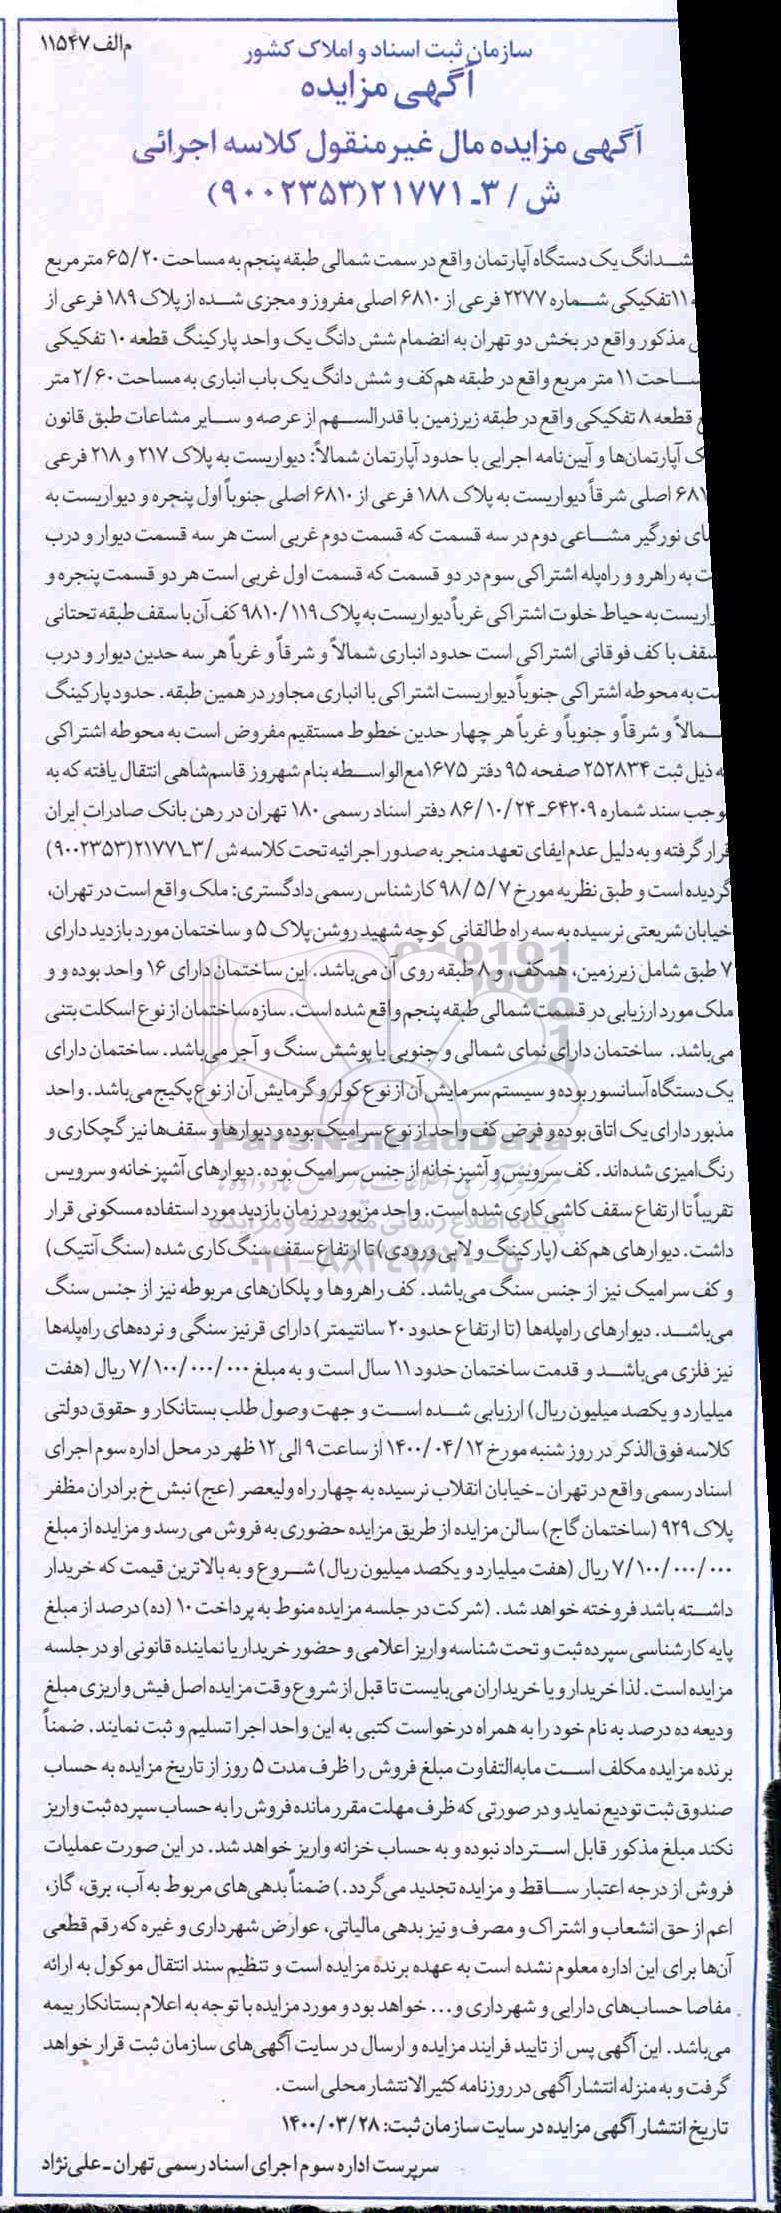 م‌الف ۱۱۵۴۷
سازمان ثبت اسناد و املاک کشور
آگهی مزایده
آگهی مزایده مال غیرمنقول کلاسه اجرائی
ش / ۳ـ ۲۱۷۷۱(۹۰۰۲۳۵۳)
ششدانگ یک دستگاه آپارتمان واقع در سمت شمالی طبقه پنجم به مساحت ۶۵/۲۰ مترمربع
۱۱ تفکیکی شماره ۲۲۷۷ فرعی از ۶۸۱۰ اصلی مفروز و مجزی شده از پلاک ۱۸۹ فرعی از
مذکور واقع در بخش دو تهران به انضمام شش دانگ یک واحد پارکینگ قطعه ۱۰ تفکیکی
ساحت ۱۱ متر مربع واقع در طبقه هم‌کف و شش دانگ یک باب انباری به مساحت ۲/۶۰ متر
قطعه ۸ تفکیکی واقع در طبقه زیرزمین با قدرالسهم از عرصه و سایر مشاعات طبق قانون
ک آپارتمان‌ها و آیین‌نامه اجرایی با حدود آپارتمان شمالاً: دیواریست به پلاک ۲۱۷ و ۲۱۸ فرعی
۶۸۱ اصلی شرقاً دیواریست به پلاک ۱۸۸ فرعی از ۶۸۱۰ اصلی جنوباً اول پنجره و دیواریست به
ای نورگیر مشاعی دوم در سه قسمت که قسمت دوم غربی است هر سه قسمت دیوار و درب
ت به راهرو و راه‌پله اشتراکی سوم در دو قسمت که قسمت اول غربی است هر دو قسمت پنجره و
اریست به حیاط خلوت اشتراکی غرباً دیواریست به پلاک ۹۸۱۰/۱۱۹ کف آن با سقف طبقه تحتانی
سقف با کف فوقانی اشتراکی است حدود انباری شمالاً و شرقاً و غرباً هر سه حدین دیوار و درب
ست به محوطه اشتراکی جنوباً دیواریست اشتراکی با انباری مجاور در همین طبقه. حدود پارکینگ
مالاً و شرقاً و جنوباً و غرباً هر چهار حدین خطوط مستقیم مفروض است به محوطه اشتراکی
ه ذیل ثبت ۲۵۲۸۳۴ صفحه ۹۵ دفتر ۱۶۷۵ مع‌الواسطه بنام شهروز قاسم‌شاهی انتقال یافته که به
وجب سند شماره ۶۴۲۰۹ـ ۸۶/۱۰/۲۴ دفتر اسناد رسمی ۱۸۰ تهران در رهن بانک صادرات ایران
قرار گرفته و به دلیل عدم ایفای تعهد منجر به صدور اجرائیه تحت کلاسه ش /۳ـ۲۱۷۷۱(۹۰۰۲۳۵۳)
گردیده است و طبق نظریه مورخ ۹۸/۵/۷ کارشناس رسمی دادگستری: ملک واقع است در تهران،
خیابان شریعتی نرسیده به سه راه طالقانی کوچه شهید روشن پلاک ۵ و ساختمان مورد بازدید دارای
۷ طبق شامل زیرزمین، همکف، و ۸ طبقه روی آن می‌باشد. این ساختمان دارای ۱۶ واحد بوده و و
ملک مورد ارزیابی در قسمت شمالی طبقه پنجم واقع شده است. سازه ساختمان از نوع اسکلت بتنی
می‌باشد. ساختمان دارای نمای شمالی و جنوبی با پوشش سنگ و آجر می‌باشد. ساختمان دارای
یک دستگاه آسانسور بوده و سیستم سرمایش آن از نوع کولر و گرمایش آن از نوع پکیج می‌باشد. واحد
مذبور دارای یک اتاق بوده و فرض کف واحد از نوع سرامیک بوده و دیوارها و سقف‌ها نیز گچکاری و
رنگ‌امیزی شده‌اند. کف سرویس و آشپزخانه از جنس سرامیک بوده. دیوارهای آشپزخانه و سرویس
تقریباً تا ارتفاع سقف کاشی‌کاری شده است. واحد مزبور در زمان بازدید مورد استفاده مسکونی قرار
داشت. دیوارهای هم‌کف (پارکینگ و لابی ورودی) تا ارتفاع سقف سنگ‌کاری شده (سنگ آنتیک)
و کف سرامیک نیز از جنس سنگ می‌باشد. کف راهروها و پلکان‌های مربوطه نیز از جنس سنگ
می‌باشد. دیوارهای راه‌پله‌ها (تا ارتفاع حدود ۲۰ سانتیمتر) دارای قرنیز سنگی و نرده‌های راه‌پله‌ها
نیز فلزی می‌باشد و قدمت ساختمان حدود ۱۱ سال است و به مبلغ ۷/۱۰۰/۰۰۰/۰۰۰ ریال (هفت
میلیارد و یکصد میلیون ریال) ارزیابی شده است و جهت وصول طلب بستانکار و حقوق دولتی
کلاسه فوق‌الذکر در روز شنبه مورخ ۱۴۰۰/۰۴/۱۲ از ساعت ۹ الی ۱۲ ظهر در محل اداره سوم اجرای
اسناد رسمی واقع در تهران ـ خیابان انقلاب نرسیده به چهار راه ولیعصر (عج) نبش خ برادران مظفر
پلاک ۹۲۹ (ساختمان گاج) سالن مزایده از طریق مزایده حضوری به فروش می رسد و مزایده از مبلغ
۷/۱۰۰/۰۰۰/۰۰۰ ریال (هفت میلیارد و یکصد میلیون ریال) شروع و به بالاترین قیمت که خریدار
داشته باشد فروخته خواهد شد. (شرکت در جلسه مزایده منوط به پرداخت ۱۰ (ده) درصد از مبلغ
پایه کارشناسی سپرده ثبت و تحت شناسه واریز اعلامی و حضور خریدار یا نماینده قانونی او در جلسه
مزایده است. لذا خریدار و یا خریداران می‌بایست تا قبل از شروع وقت مزایده اصل فیش واریزی مبلغ
ودیعه ده درصد به نام خود را به همراه درخواست کتبی به این واحد اجرا تسلیم و ثبت نمایند. ضمناً
برنده مزایده مکلف است مابه‌التفاوت مبلغ فروش را ظرف مدت ۵ روز از تاریخ مزایده به حساب
صندوق ثبت تودیع نماید و در صورتی که ظرف مهلت مقرر مانده فروش را به حساب سپرده ثبت واریز
نکند مبلغ مذکور قابل استرداد نبوده و به حساب خزانه واریز خواهد شد. در این صورت عملیات
فروش از درجه اعتبار ساقط و مزایده تجدید می‌گردد.) ضمناً بدهی‌های مربوط به آب، برق، گاز،
اعم از حق انشعاب و اشتراک و مصرف و نیز بدهی مالیاتی، عوارض شهرداری و غیره که رقم قطعی
آن‌ها برای این اداره معلوم نشده است به عهده برنده مزایده است و تنظیم سند انتقال موکول به ارائه
مفاصا حساب‌های دارایی و شهرداری و... خواهد بود و مورد مزایده با توجه به اعلام بستانکار بیمه
می‌باشد. این آگهی پس از تایید فرایند مزایده و ارسال در سایت آگهی‌های سازمان ثبت قرار خواهد
گرفت و به منزله انتشار آگهی در روزنامه کثیرالانتشار محلی است.
تاریخ انتشار آگهی مزایده در سایت سازمان ثبت: ۱۴۰۰/۰۳/۲۸
سرپرست اداره سوم اجرای اسناد رسمی تهران ـ علی‌نژاد
ParsNamadData
پایگاه اطلاع رسانی مناقصه و مزایده
۰۲۱-۸۸۳۴۹۶۷۰-۵